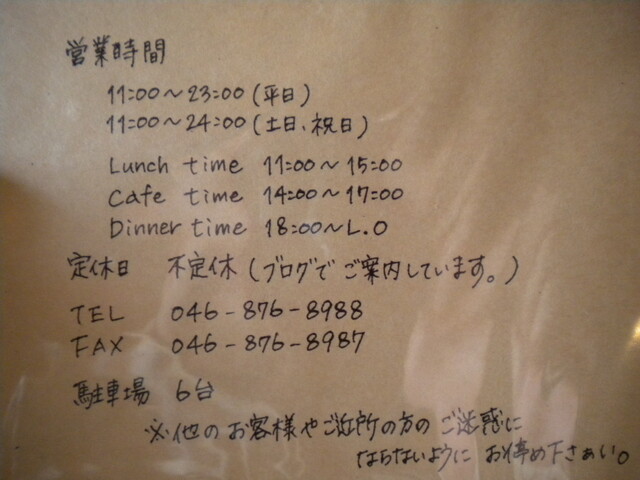 営業時間
11:00～23:00 (平日)
11:00～24:00 (土日、祝日)
Lunch time 11:00～15:00
Cafe time 14:00～17:00
Dinner time 18:00～L.O
定休日 不定休 (ブログで ご案内しています。)
TEL 046-876-8988
FAX 046-876-8987
駐車場 6台
※他のお客様やご近所の方の ご迷惑に
ならないように お停め下さぁい。